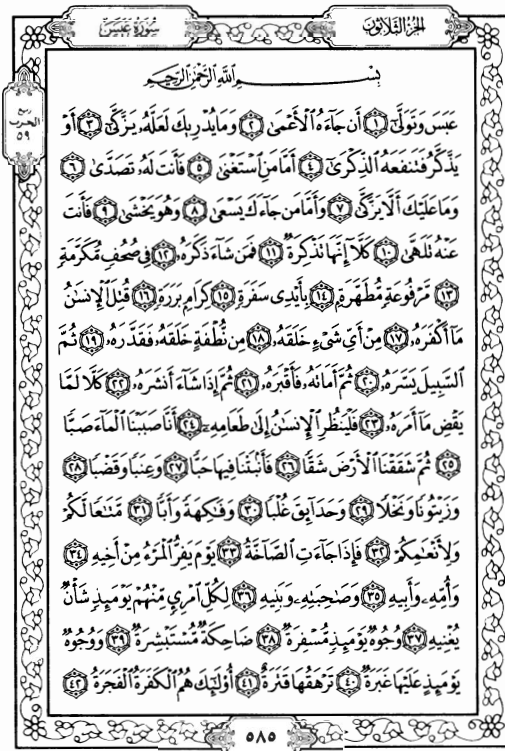 سُورَةُ عَبَسَ الجُزْءُ الثَّلَاثُونَ
رُبْع
الحِزْب
٥٩
بِسْمِ اللَّهِ الرَّحْمَٰنِ الرَّحِيمِ
عَبَسَ وَتَوَلَّىٰٓ ١ أَن جَآءَهُ ٱلْأَعْمَىٰ ٢ وَمَا يُدْرِيكَ لَعَلَّهُۥ يَزَّكَّىٰٓ ٣ أَوْ
يَذَّكَّرُ فَتَنفَعَهُ ٱلذِّكْرَىٰٓ ٤ أَمَّا مَنِ ٱسْتَغْنَىٰ ٥ فَأَنتَ لَهُۥ تَصَدَّىٰ ٦
وَمَا عَلَيْكَ أَلَّا يَزَّكَّىٰ ٧ وَأَمَّا مَن جَآءَكَ يَسْعَىٰ ٨ وَهُوَ يَخْشَىٰ ٩ فَأَنتَ
عَنْهُ تَلَهَّىٰ ١٠ كَلَّآ إِنَّهَا تَذْكِرَةٌ ١١ فَمَن شَآءَ ذَكَرَهُۥ ١٢ فِى صُحُفٍ مُّكَرَّمَةٍ
١٣ مَّرْفُوعَةٍ مُّطَهَّرَةٍۭ ١٤ بِأَيْدِى سَفَرَةٍ ١٥ كِرَامٍۭ بَرَرَةٍ ١٦ قُتِلَ ٱلْإِنسَٰنُ
مَآ أَكْفَرَهُۥ ١٧ مِنْ أَىِّ شَىْءٍ خَلَقَهُۥ ١٨ مِن نُّطْفَةٍ خَلَقَهُۥ فَقَدَّرَهُۥ ١٩ ثُمَّ
ٱلسَّبِيلَ يَسَّرَهُۥ ٢٠ ثُمَّ أَمَاتَهُۥ فَأَقْبَرَهُۥ ٢١ ثُمَّ إِذَا شَآءَ أَنشَرَهُۥ ٢٢ كَلَّا لَمَّا
يَقْضِ مَآ أَمَرَهُۥ ٢٣ فَلْيَنظُرِ ٱلْإِنسَٰنُ إِلَىٰ طَعَامِهِۦٓ ٢٤ أَنَّا صَبَبْنَا ٱلْمَآءَ صَبًّا
٢٥ ثُمَّ شَقَقْنَا ٱلْأَرْضَ شَقًّا ٢٦ فَأَنۢبَتْنَا فِيهَا حَبًّا ٢٧ وَعِنَبًا وَقَضْبًا ٢٨
وَزَيْتُونًا وَنَخْلًا ٢٩ وَحَدَآئِقَ غُلْبًا ٣٠ وَفَٰكِهَةً وَأَبًّا ٣١ مَّتَٰعًا لَّكُمْ
وَلِأَنْعَٰمِكُمْ ٣٢ فَإِذَا جَآءَتِ ٱلصَّآخَّةُ ٣٣ يَوْمَ يَفِرُّ ٱلْمَرْءُ مِنْ أَخِيهِ ٣٤
وَأُمِّهِۦ وَأَبِيهِ ٣٥ وَصَٰحِبَتِهِۦ وَبَنِيهِ ٣٦ لِكُلِّ ٱمْرِئٍ مِّنْهُمْ يَوْمَئِذٍ شَأْنٌ
يُغْنِيهِ ٣٧ وُجُوهٌ يَوْمَئِذٍ مُّسْفِرَةٌ ٣٨ ضَاحِكَةٌ مُّسْتَبْشِرَةٌ ٣٩ وَوُجُوهٌ
يَوْمَئِذٍ عَلَيْهَا غَبَرَةٌ ٤٠ تَرْهَقُهَا قَتَرَةٌ ٤١ أُو۟لَٰٓئِكَ هُمُ ٱلْكَفَرَةُ ٱلْفَجَرَةُ ٤٢
٥٨٥